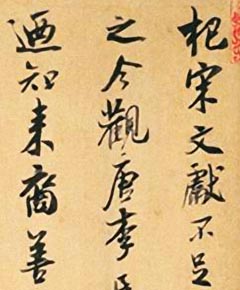 杞宋文獻不足
之今觀唐李
迺知来裔善